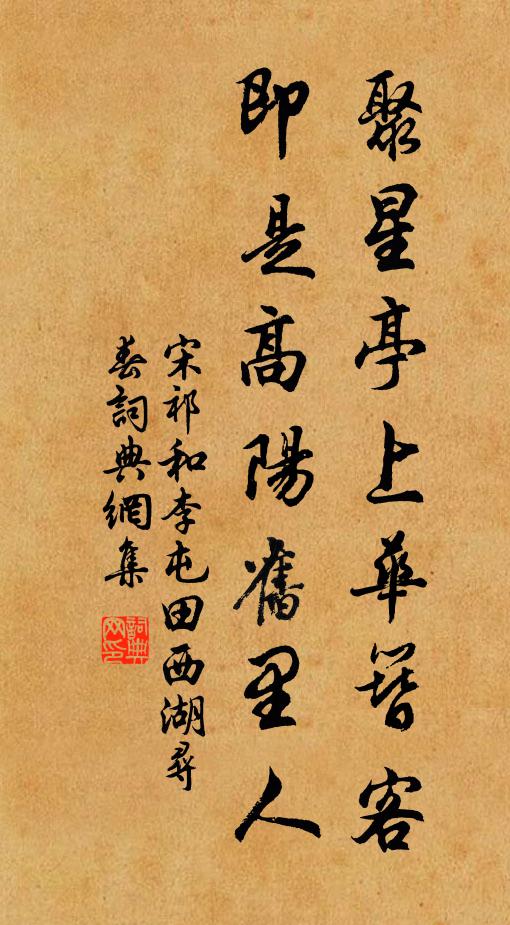 聚星亭上華簪客
即是高陽舊里人
宋祁和李屯田西湖尋
春詞典網集
詞典網印